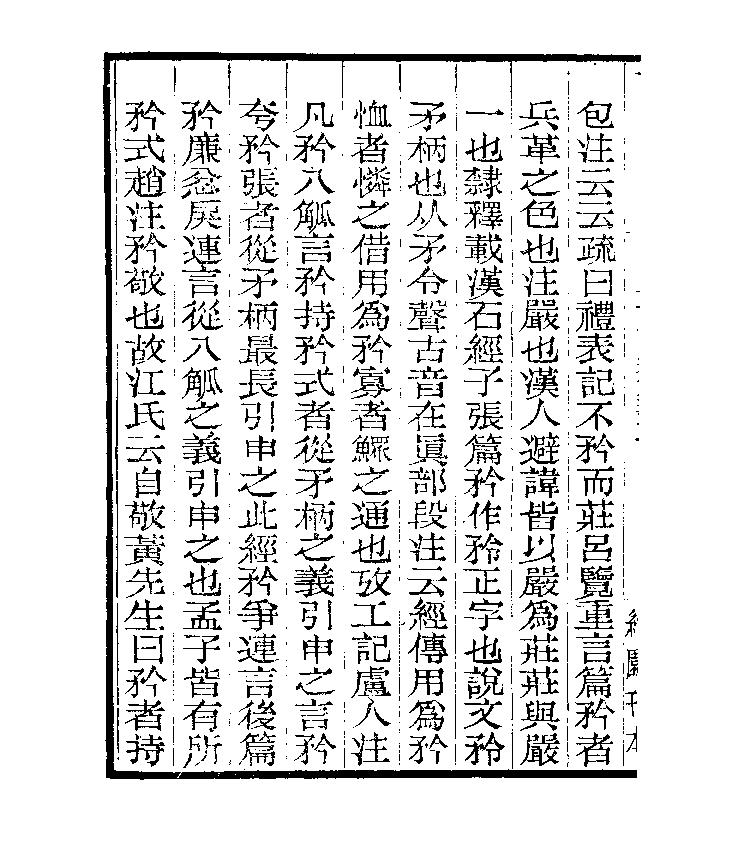 包注云云疏曰禮表記不矜而莊呂覽重言篇矜者
兵革之色也注嚴也漢人避諱皆以嚴爲莊莊與嚴
一也隸釋載漢石經子張篇矜作矝正字也說文矝
矛柄也从矛令聲古音在眞部段注云經傳用爲矜
恤者憐之借用爲矜寡者鰥之通也攷工記盧人注
凡矜八觚言矜持矜式者從矛柄之義引申之言矜
夸矜張者從矛柄最長引申之此經矜爭連言後篇
矜廉忿戾連言從八觚之義引申之也孟子皆有所
矜式趙注矜敬也故江氏云自敬黃先生曰矜者持